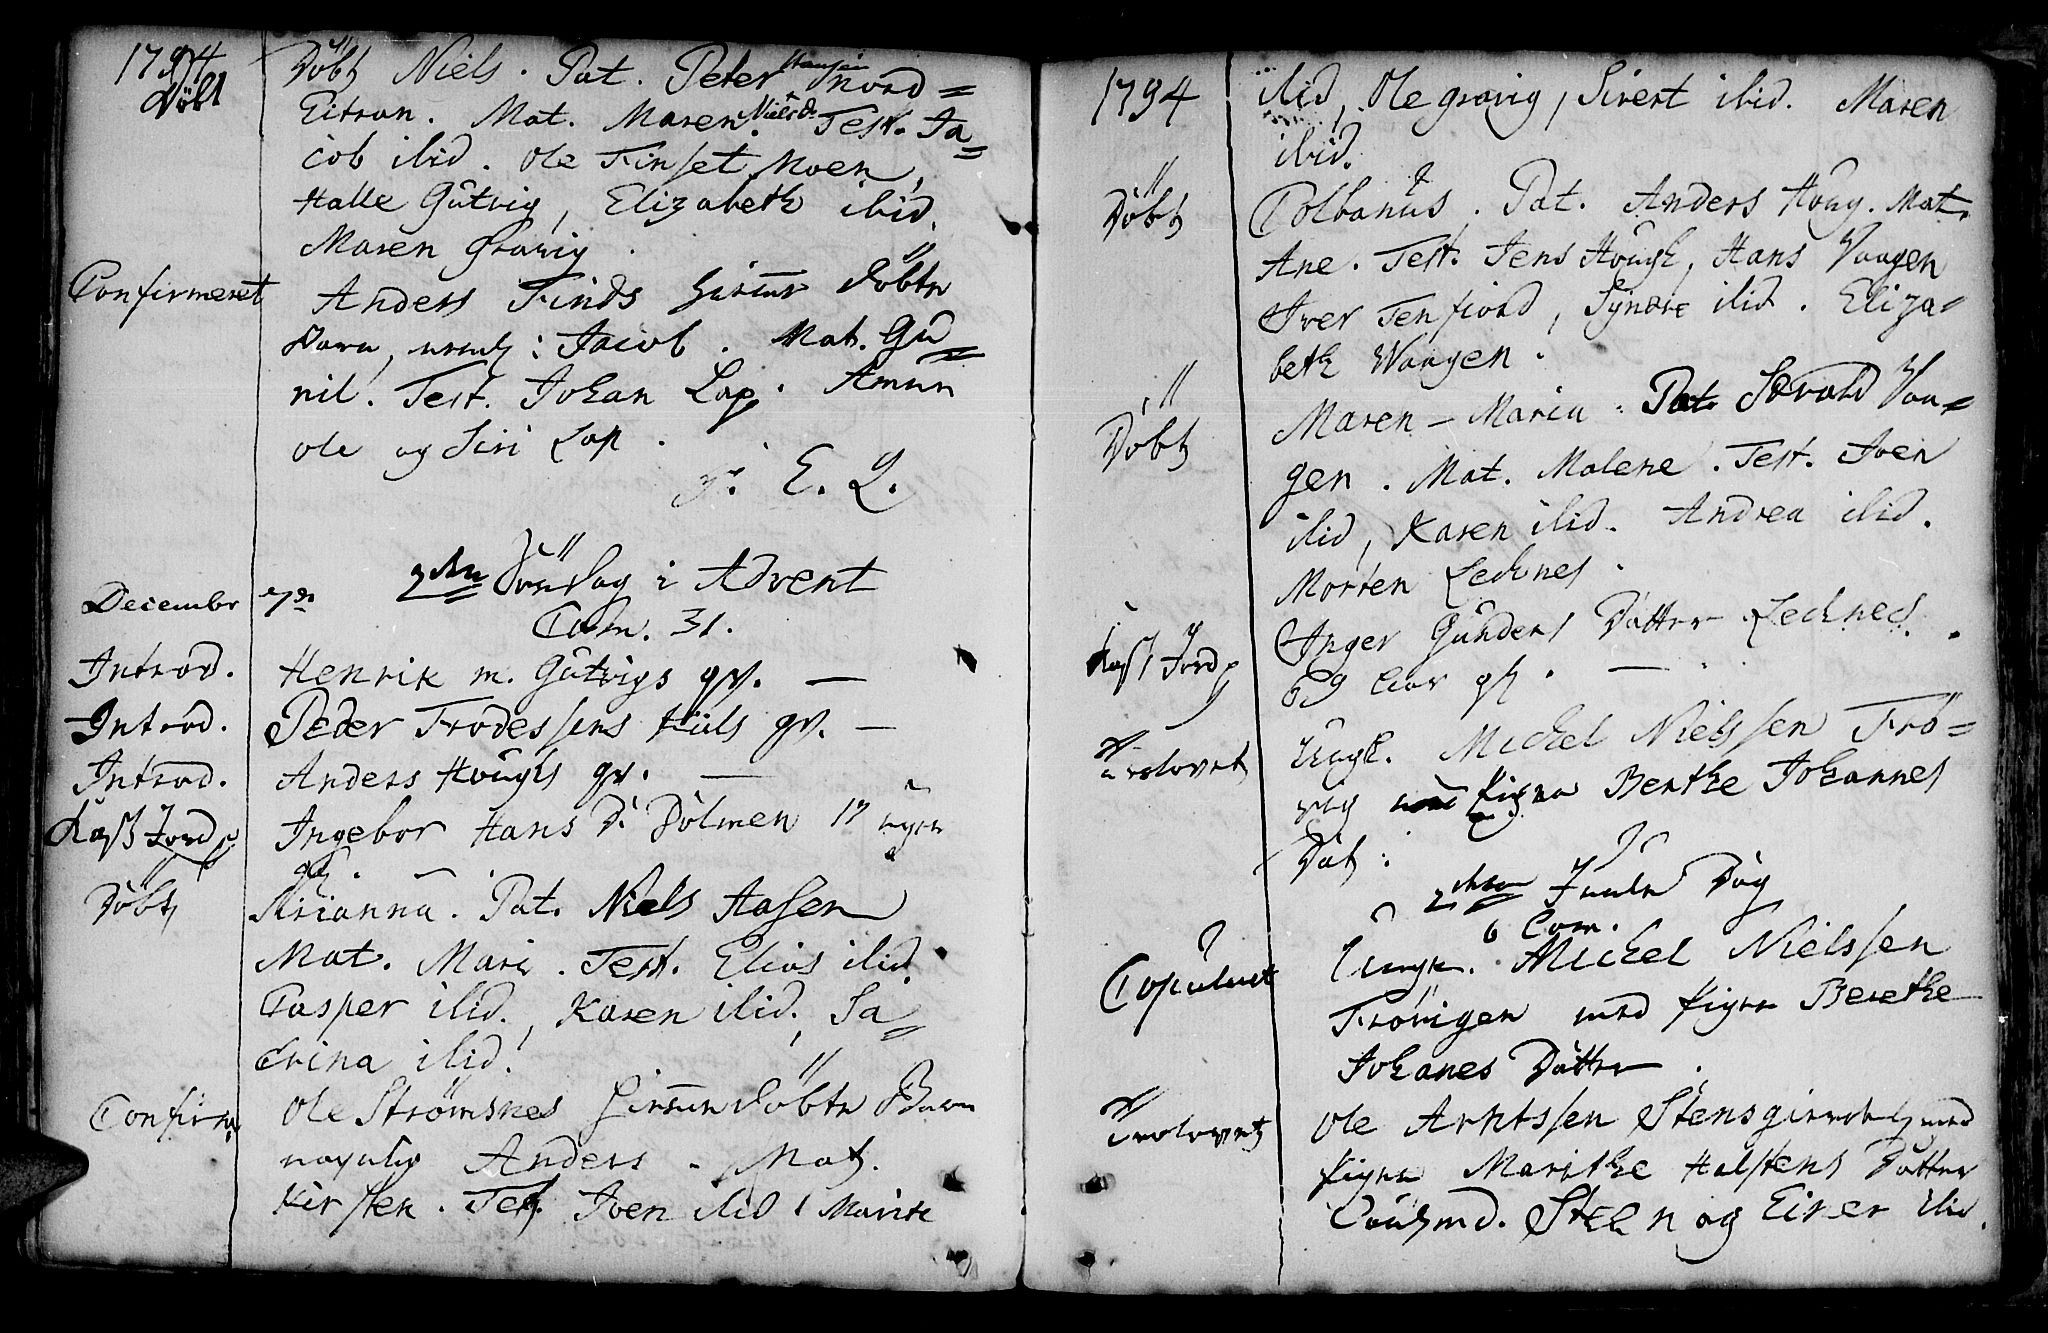 1794
Döbt Döbt Niels. Pat. Peter Hansen Nord=
Eitran. Mat. Maren Nielsd. Test. Ja=
cob ibid. Ole Finset Moen,
Halle Gutvig, Elizabeth ibid.
Maren Gravig.
Confirmeret Anders Finds hiemme döbte
Barn, : Jacob. Mat. Gu=
nil. Test. Johan Lap. Amun
Ole og Siri Lap.
E. L.
Decembr 7de 2den Söndag i Advent
Com. 31.
Introd. Henrik m. Gutvigs qv. —
Introd. Peder Frodessens Hiils qv. —
Introd. Anders Hougs qv. —
Kast Jord p Ingebor Hans D. Dolmen 17 uger
gl.
Döbt Arianna. Pat. Niels Aasen
Mat. Mari. Test. Elias ibid.
Casper ibid., Karen ibid, Ca=
trina ibid.
Confirm Ole Strömsnes hiemme döbte Barn
navnlig Anders. Mat.
Kirsten. Test. Joen ibid, Marite
1794
ibid, Ole gravig, Sivert ibid. Maren
ibid.
Döbt Colbanus. Pat. Anders Houg. Mat.
Ane. Test. Jens Hough, Hans Vaagen
Iver Tenfiord, Synöve ibid. Eliza=
beth Waagen.
Döbt Maren-Maria. Pat. Vaa=
gen. Mat. Malene. Test. Joen
ibid, Karen ibid. Andrea ibid.
Morten Lechnes.
Kast Jord p Inger Gunders Datter Lechnes.
69 Aar gl. —
Trolovet Ungk. Michel Nielssen Frö=
vig med Pigen Berthe Johannes
Dat:
2den Juule Dag
6 Com.
Copuleret Ungk. Michel Nielssen
Frövigen med Pigen Berethe
Johanes Datter.
Trolovet Ole Arntssen med
Pigen Marithe Halstens Datter
Steen og Einer ibid.